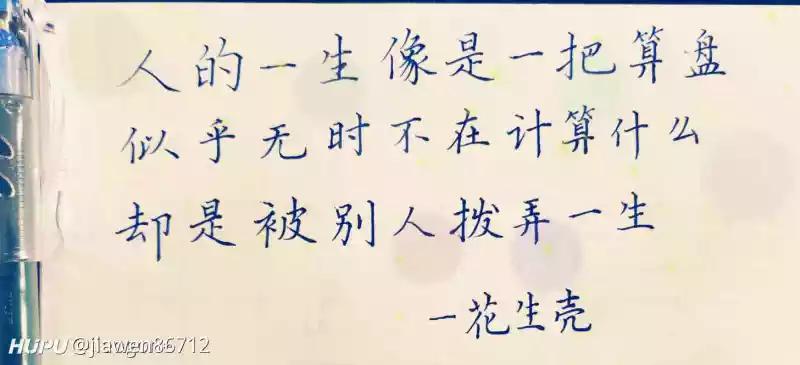 人的一生像是一把算盘
似乎无时不在计算什么
却是被别人拨弄一生
一花生壳
HUPU @jiawen86712